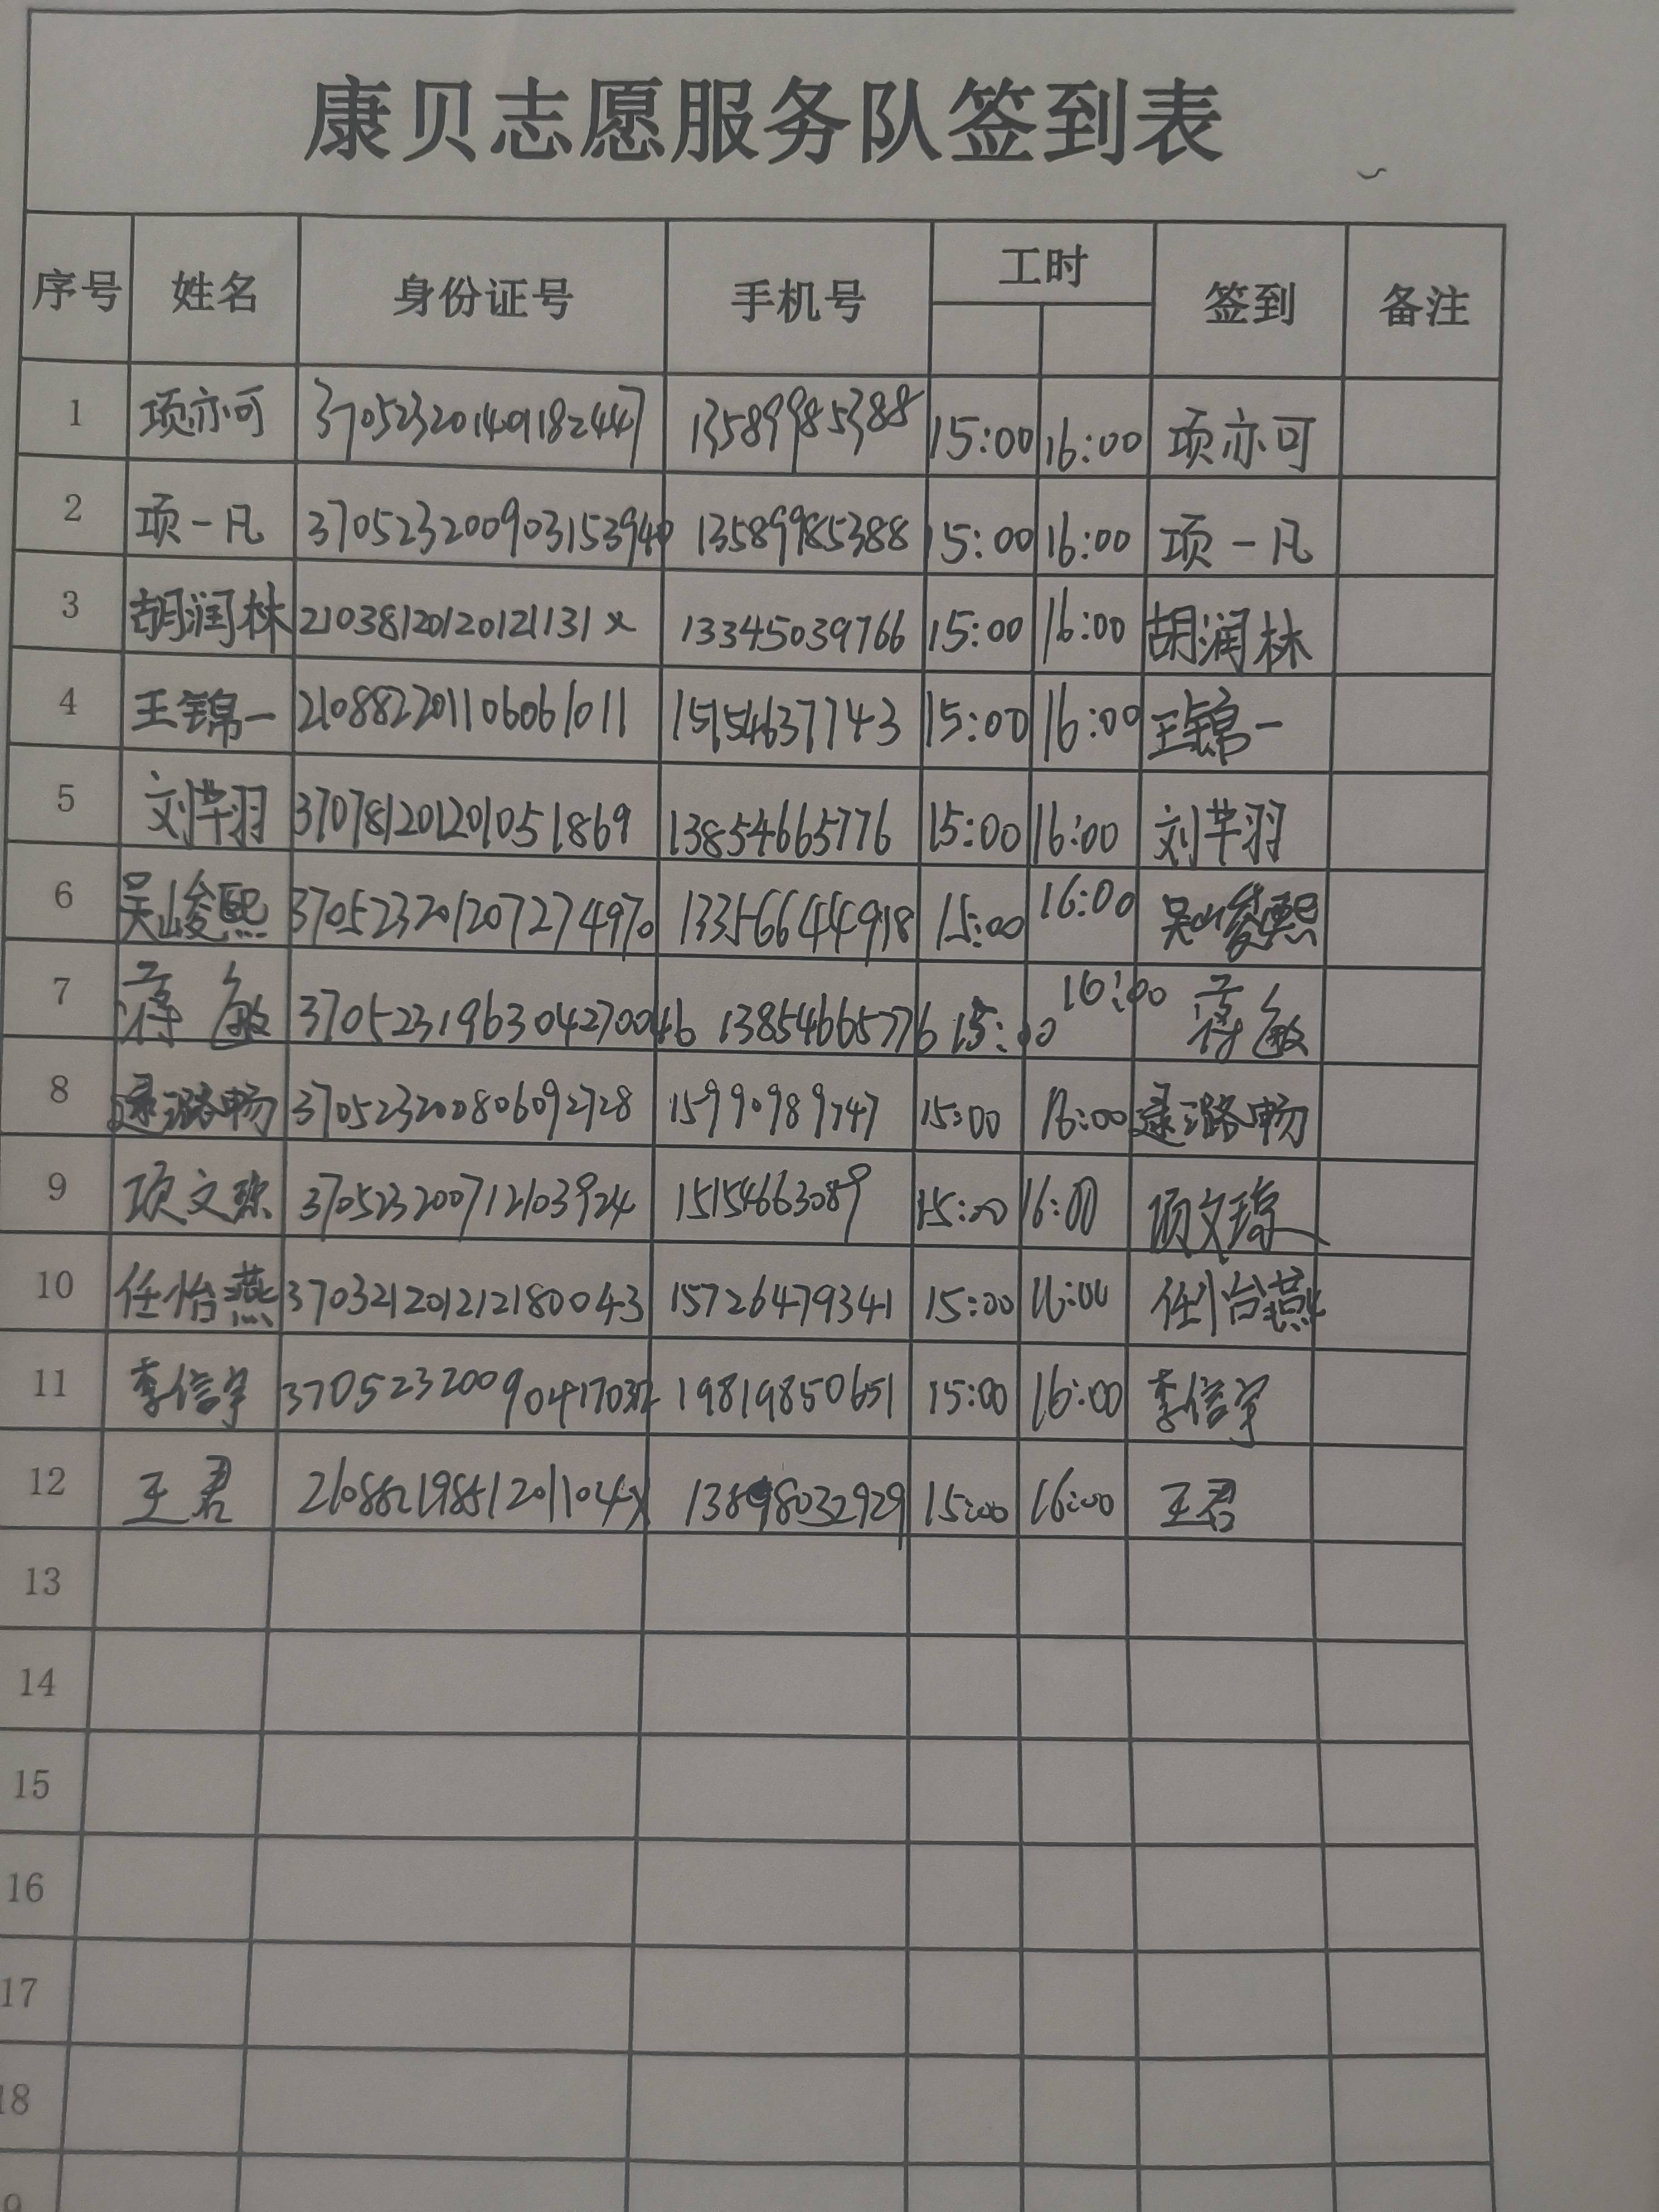 康贝志愿服务队签到表
序号 姓名 身份证号 手机号 工时 签到 备注
1 项亦可 370523201401182447 13589985388 15:00 16:00 项亦可
2 项一凡 370523200903153940 13589985388 15:00 16:00 项一凡
3 胡润林 21038120120121131x 13345039766 15:00 16:00 胡润林
4 王锦一 210882201106061011 15154637743 15:00 16:00 王锦一
5 刘芊羽 370781201201051869 13854665776 15:00 16:00 刘芊羽
6 吴峻熙 370523201207274970 13356644918 15:00 16:00 吴峻熙
7 蒋敏 370523196304270046 13854665776 15:00 16:00 蒋敏
8 逯璐畅 370523200806092728 15990989747 15:00 16:00 逯璐畅
9 项文琼 370523200712103924 15154663089 15:00 16:00 项文琼
10 任怡燕 370321201212180043 15726479341 15:00 16:00 任怡燕
11 李信宇 19819850651 15:00 16:00 李信宇
12 王君 21088219851201104x 13898032929 15:00 16:00 王君
13
14
15
16
17
18
9